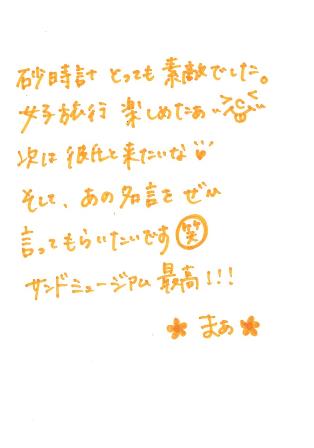 砂時計 とっても 素敵でした。
女子旅行 楽しめたぁ
次は 彼氏と来たいな
そして、あの名言を ぜひ
言ってもらいたいです 笑
サンドミュージアム 最高!!!
まぁ